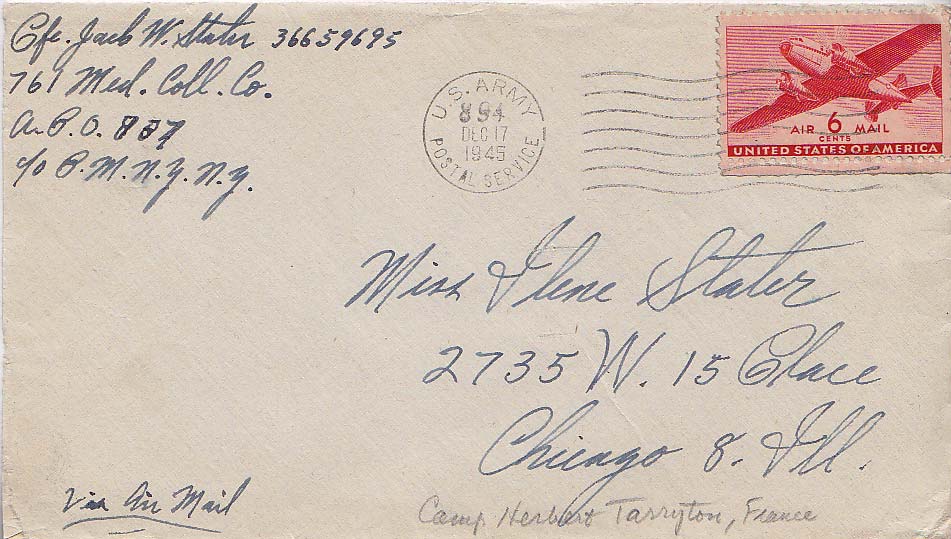 Pfc. Jack W. Stater 36659695
761 Med. Coll. Co.
A.P.O. 887
c/o P.M. N.Y. N.Y.
U.S. ARMY
894
DEC 17
1945
POSTAL SERVICE
AIR 6 MAIL
CENTS
UNITED STATES OF AMERICA
Miss Ilene Stater
2735 W. 15 Place
Chicago 8. Ill.
Via Air Mail
Camp Herbert Tarryton, France